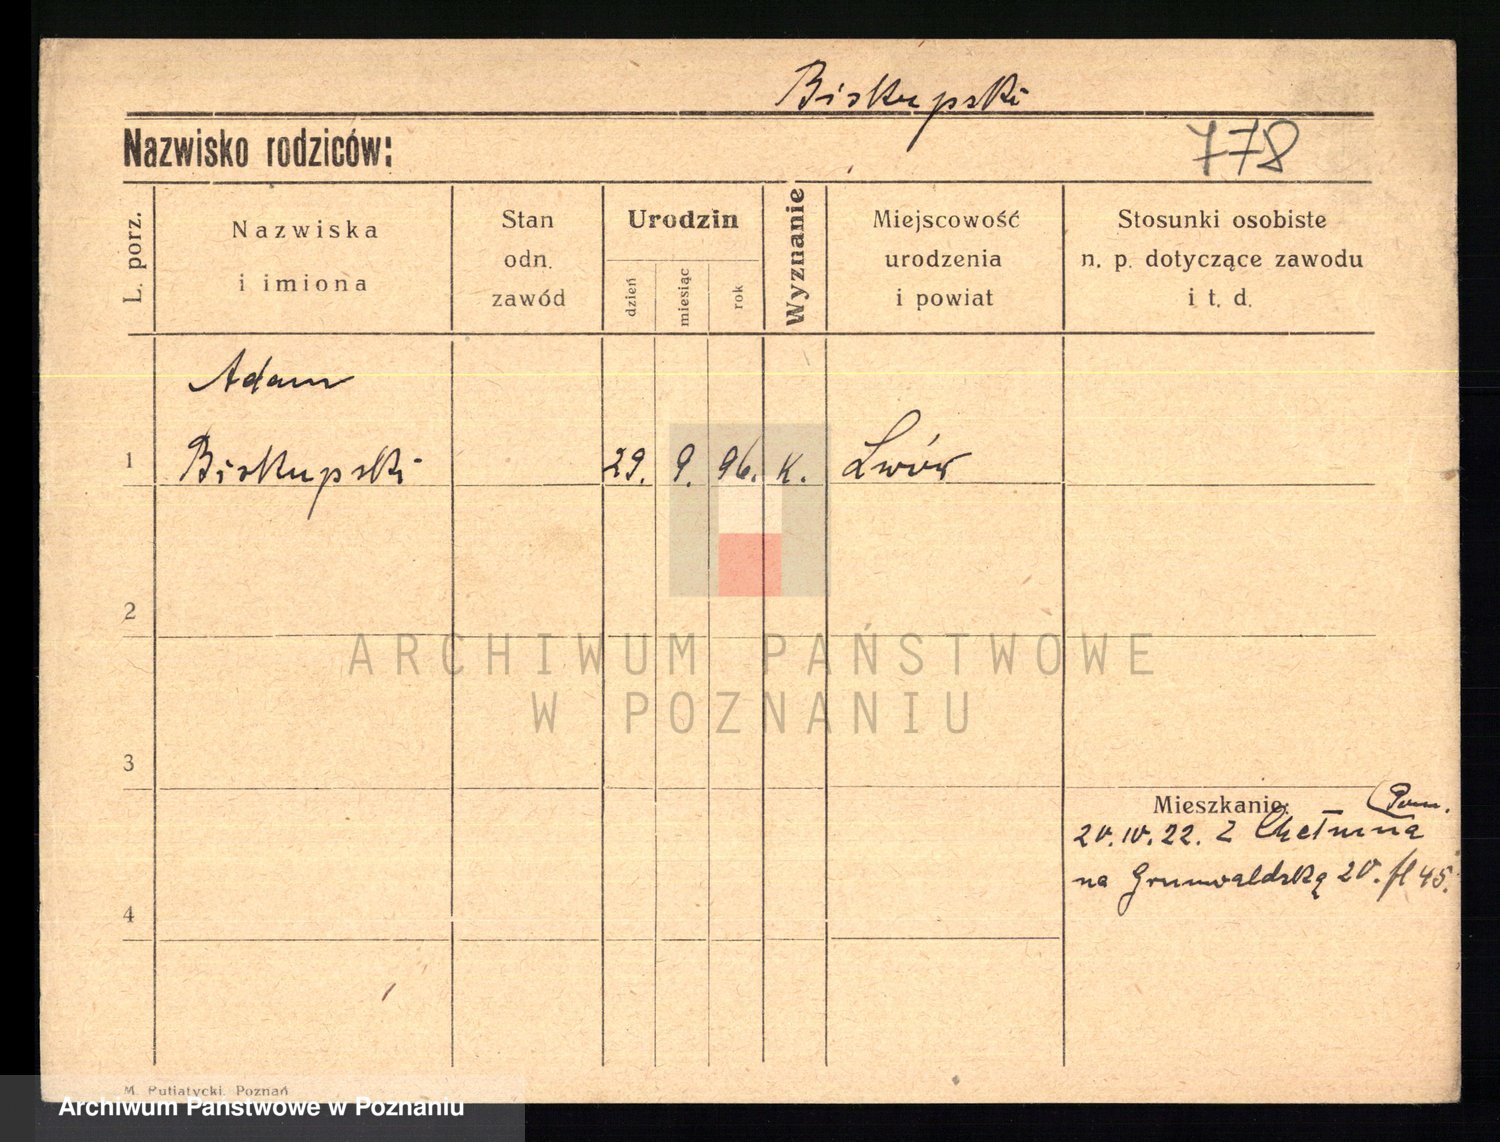 Biskupski
Nazwisko rodziców:
778
L. porz.
Nazwiska
i imiona
Stan
odn.
zawód
Urodzin
dzień
miesiąc
rok
Wyznanie
Miejscowość
urodzenia
i powiat
Stosunki osobiste
n. p. dotyczące zawodu
i t. d.
Adam
1 Biskupski 29. 9. 96. K. Lwów
2
ARCHIWUM PAŃSTWOWE
W POZNANIU
3
Mieszkanie: (Pom.
20.IV.22. z Chełmna
na Grunwaldzką 20. fl 45.
4
M. Putiatycki. Poznań
Archiwum Państwowe w Poznaniu